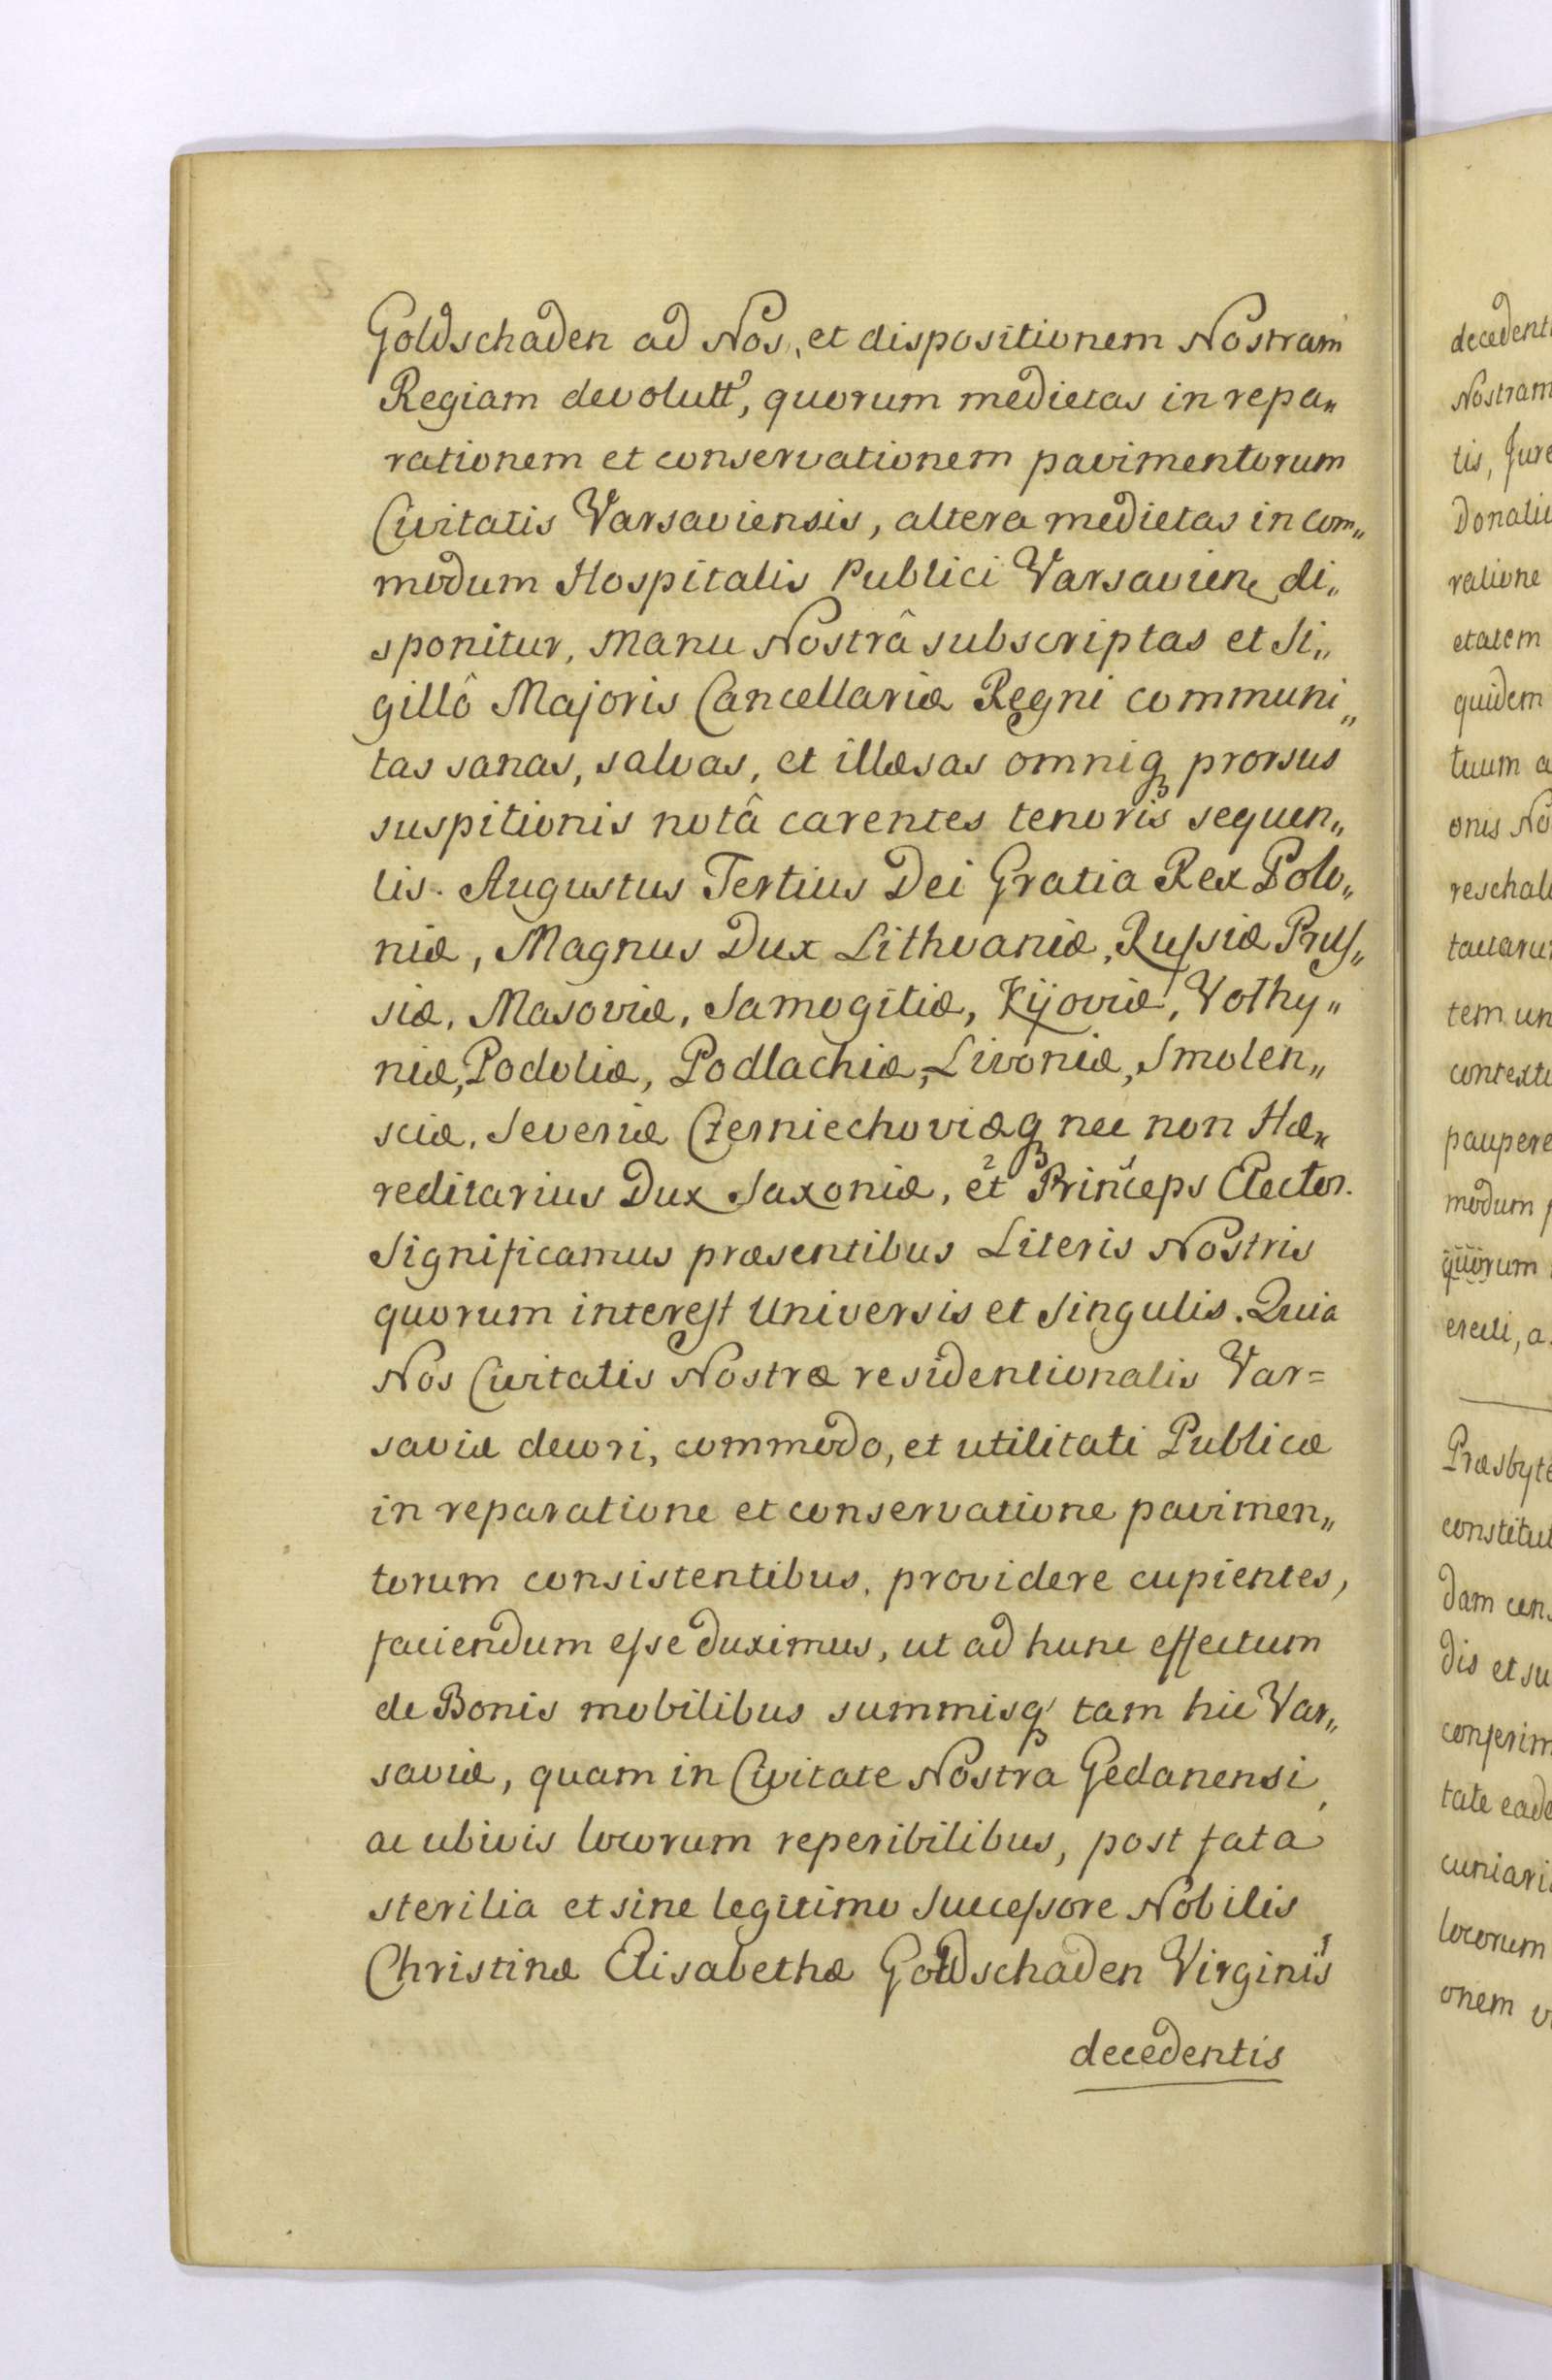 Goldschaden ad Nos, et dispositionem Nostram
Regiam devolutt, quorum medietas in repa„
rationem et conservationem pavimentorum
Civitatis Varsaviensis, altera medietas in com„
modum Hospitalis Publici Varsavien di„
sponitur, Manu Nostrâ subscriptas et Si„
gillô Majoris Cancellariæ Regni communi„
tas sanas, salvas, et illæsas omniq prorsus
suspitionis notâ carentes tenoris sequen„
tis. Augustus Tertius Dei Gratia Rex Polo„
niæ, Magnus Dux Lithvaniæ, Russiæ Prus„
siæ, Masoviæ, Samogitiæ, Kijoviæ, Volhy„
niæ, Podoliæ, Podlachiæ, Livoniæ, Smolen„
sciæ, Severiæ Czerniechoviæq nec non Hæ„
reditarius Dux Saxoniæ, et Princeps Elector.
Significamus præsentibus Literis Nostris
quorum interest Universis et Singulis. Quia
Nos Civitatis Nostræ residentionalis Var=
saviæ decori, commodo, et utilitati Publicæ
in reparatione et conservatione pavimen„
torum consistentibus, providere cupientes,
faciendum esse duximus, ut ad hunc effectum
de Bonis mobilibus summisq tam hic Var„
saviæ, quam in Civitate Nostra Gedanensi,
ac ubivis locorum reperibilibus, post fata
sterilia et sine legitimo Successore Nobilis
Christinæ Elisabethæ Goldschaden Virginis
decedentis
decedenti
Nostram
tis, Jure
Donatio
ratione
etatem
quidem
tuum a
onis No
reschal
tactaru
tem un
contextu
paupere
modum
quorum
erecti, a
Præsbyte
constitut
dam cen
dis et su
conferim
tate eade
cuniari
locorum
onem v